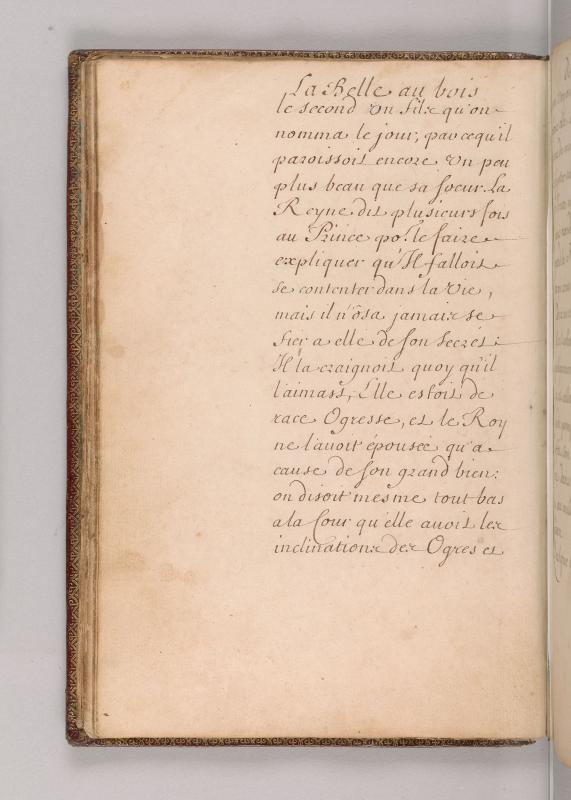 La Belle au bois
le second un fils qu'on
nomma le jour, parcequ'il
paroissoit encore un peu
plus beau que sa soeur. La
Reyne dit plusieurs fois
au Prince po.r le faire
expliquer qu'Il falloit
se contenter dans la vie,
mais il n'ôsa jamais se
fier a elle de son secret:
Il la craignoit quoy qu'il
l'aimast, Elle estoit de
race Ogresse, et le Roy
ne l'avoit épousée qu'a
cause de son grand bien:
on disoit mesme tout bas
a la Cour qu'elle avoit les
inclinations des Ogres et